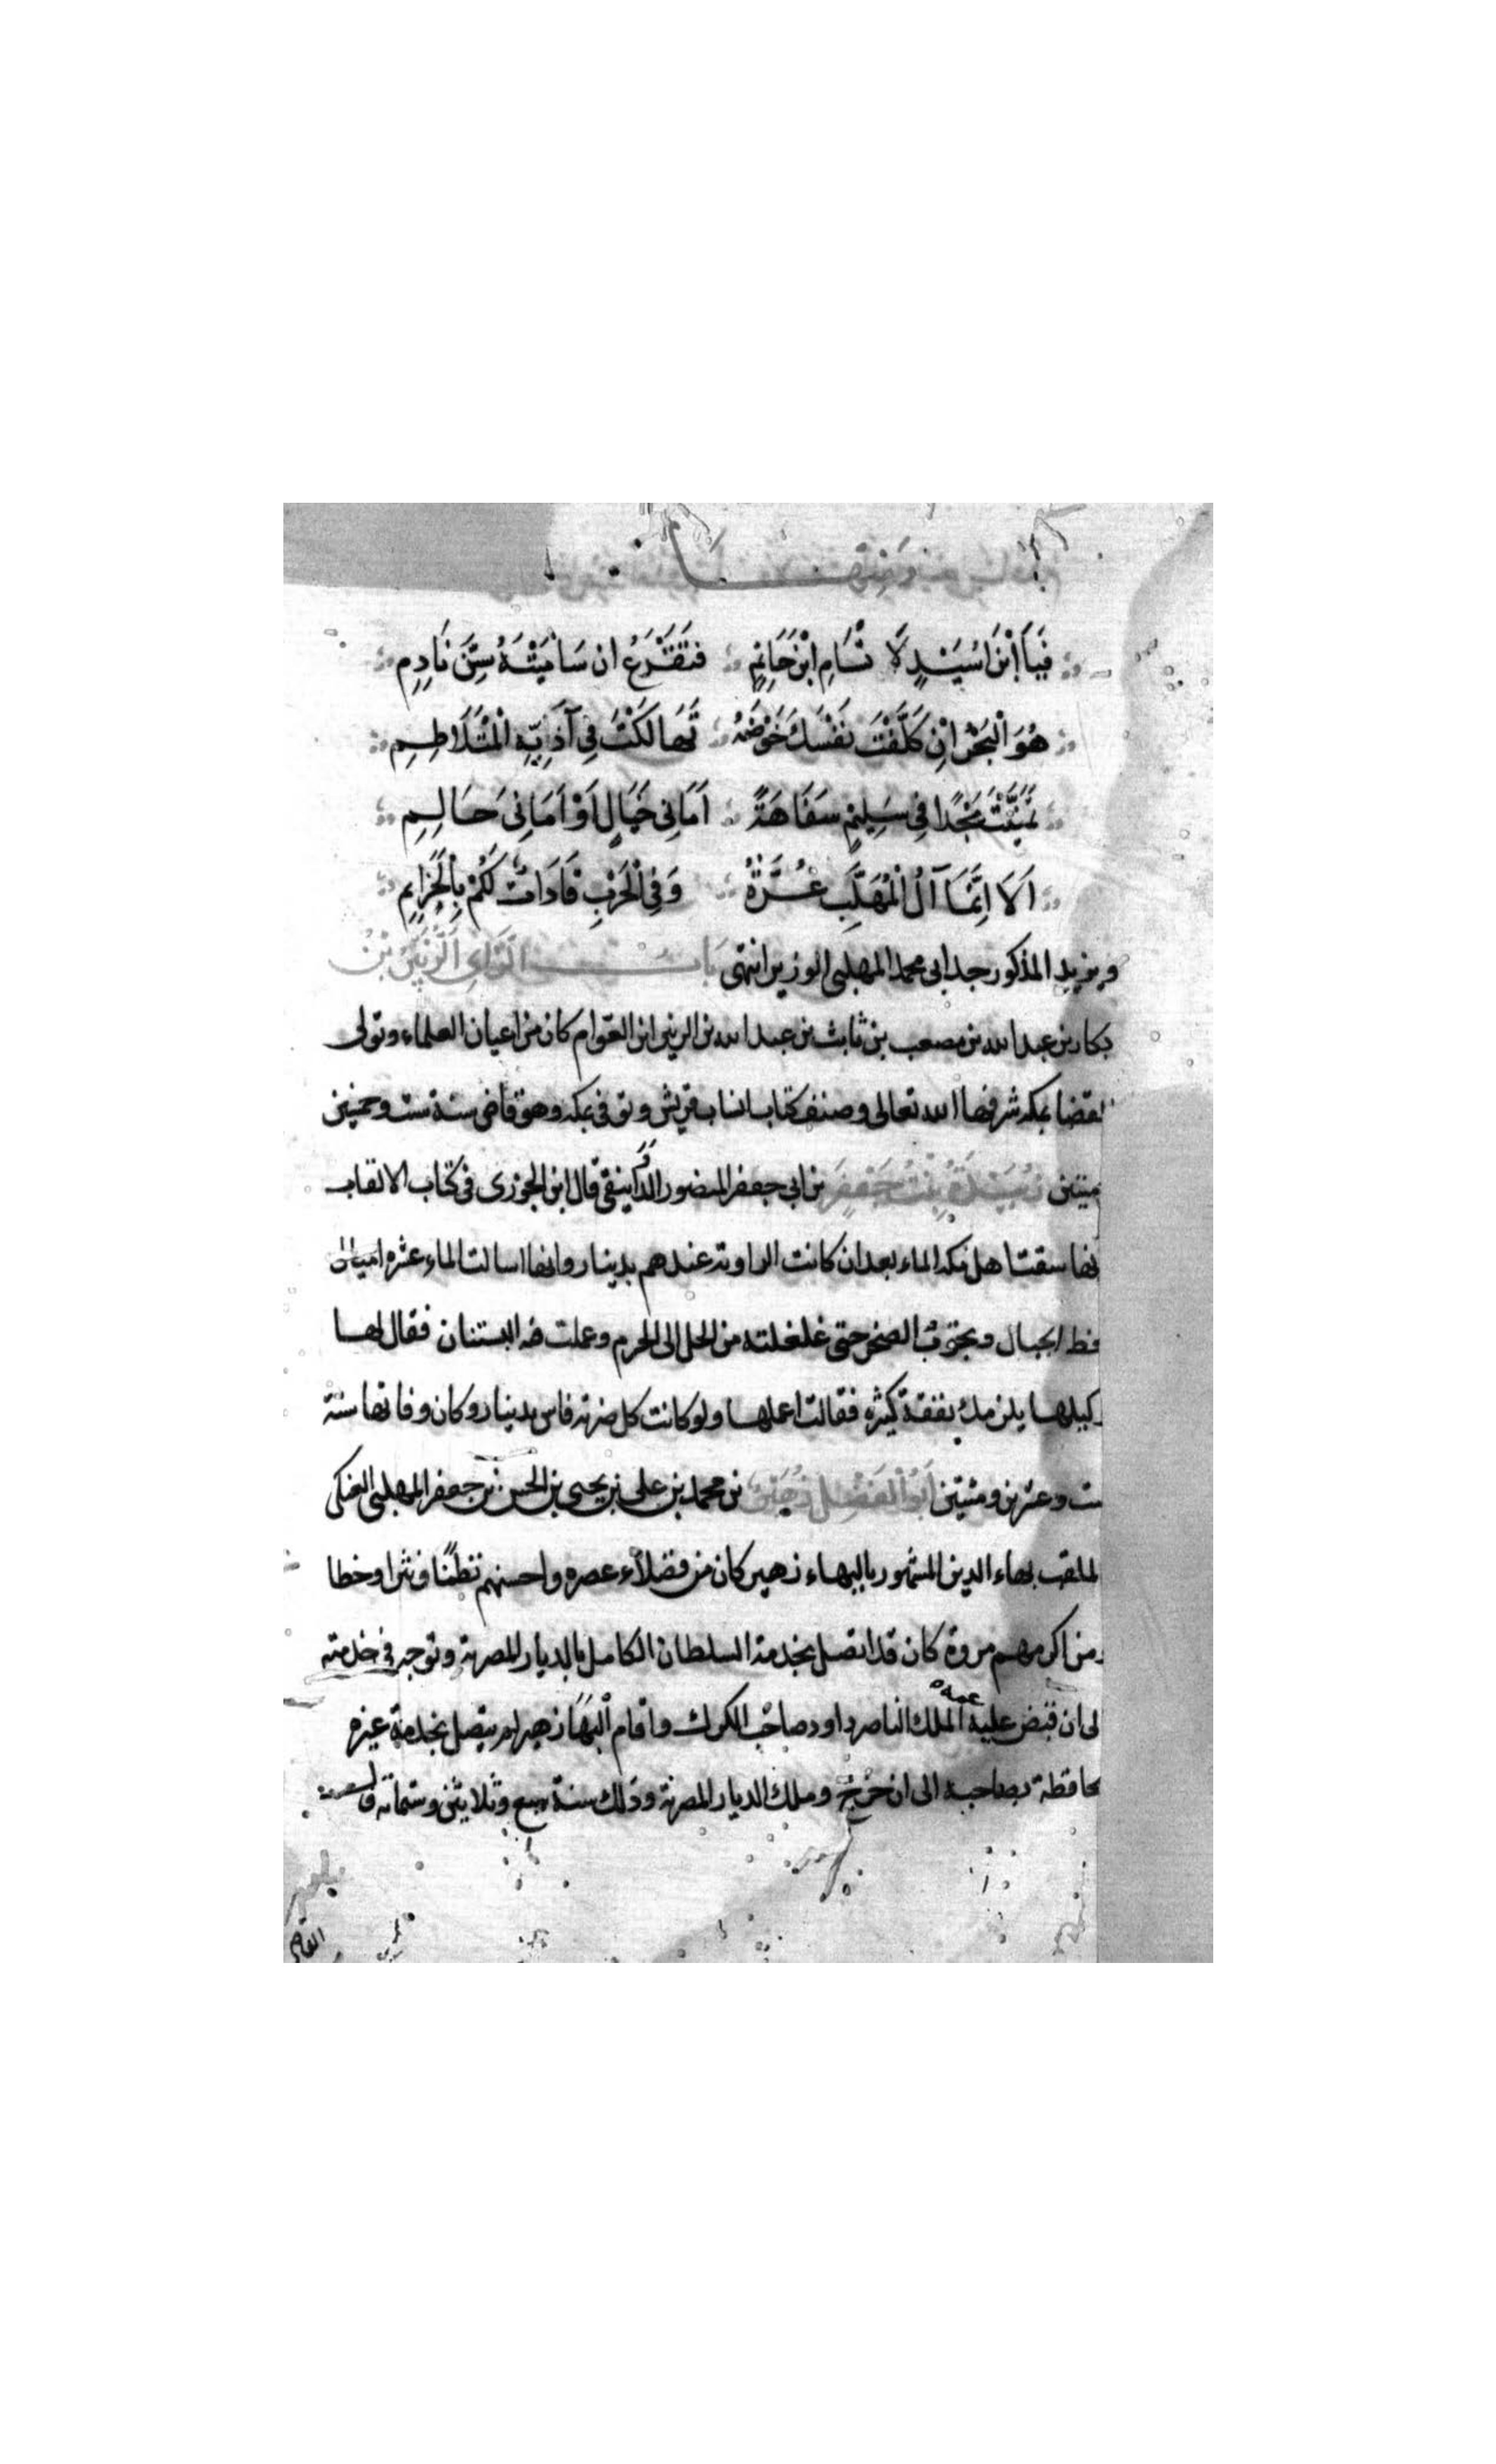 ومنها
فَيَا ابْنَ اُسَيْدٍ لَا تُسَامِ ابْنَ حَاتِمٍ فَتَقْرَعَ ان سَامَيْتَهُ سِنَّ نَادِمِ
هُوَ الْبَحْرُ اِنْ كَلَّفْتَ نَفْسَكَ خَوْضَهُ تَهَالَكْتَ فِي آذِيِّهِ الْمُتَلَاطِمِ
تَمَنَّيْتَ مَجْدًا فِي سَلِيمٍ سَفَاهَةً اَمَانِيَ خَيَالٍ اَوْ اَمَانِيَ حَالِمِ
اَلَا اِنَّمَا آلُ الْمُهَلَّبِ غُرَّةٌ وَفِي الْحَرْبِ قَادَاتٌ لَكُمْ بِالْخَزَايِمِ
ويزيد المذكور جد ابي محمد المهلبي الوزير انتهى بَابُ الزَّاي الزُّبَيْرُ بْنُ
بكار بن عبد الله بن مصعب بن ثابت بن عبد الله بن الزبير ابن العوام كان من اعيان العلماء وتولى
القضا بمكه شرفها الله تعالى وصنف كتاب انساب قريش وتوفى بمكه وهو قاضي سنة ست وخمسين
ميتين زُبَيْدَةُ بِنْتُ جَعْفَرَ بن ابي جعفر المنصور الدَّوانيقي قال ابن الجوزي في كتاب الالقاب
انها سقت اهل مكه الماء بعد ان كانت الراويه عندهم بدينار وانها اسالت الماء عشره اميال
بخط الجبال وبجوب الصخر حتى غلغلته من الحل الى الحرم وعملت البستان فقال لها
وكيلها يلزمك نفقة كثيره فقالت اعملها ولو كانت كل ضربة فاس بدينار وكان وفاتها سنة
ست وعشرين وميتين اَبُو الْفَضْلِ زُهَيْرُ بن محمد بن علي بن يحيى بن الحسن بن جعفر المهلبي العتكي
الملقب بهاء الدين المشهور بالبهاء زهير كان من فضلاء عصره واحسنهم نظما ونثرا وخطا
ومن اكرمهم مروة كان قد اتصل بخدمة السلطان الكامل بالديار المصريه وتوجه في خدمته
الى ان قبض عليه عمه الملك الناصر داود صاحب الكرك واقام الْبَهَا زهير لم يتصل بخدمة غيره
محافظة بصاحبه الى ان خرج وملك الديار المصرية وذلك سنة سبع وثلاثين وستمائة